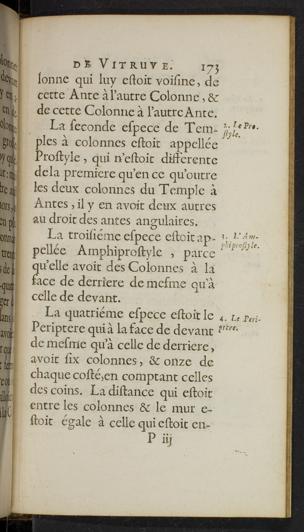 DE VITRUVE. 173
ſonne qui luy eſtoit voiſine, de
cette Ante à l'autre Colonne, &
de cette Colonne à l'autre Ante.
La ſeconde eſpece de Tem-
ples à colonnes eſtoit appellée
Proſtyle, qui n'eſtoit differente
de la premiere qu'en ce qu'outre
les deux colonnes du Temple à
Antes, il y en avoit deux autres
au droit des antes angulaires.
La troiſiéme eſpece eſtoit ap-
pellée Amphiproſtyle, parce
qu'elle avoit des Colonnes à la
face de derriere de meſme qu'à
celle de devant.
La quatriéme eſpece eſtoit le
Periptere qui à la face de devant
de meſme qu'à celle de derriere,
avoit ſix colonnes, & onze de
chaque coſté, en comptant celles
des coins. La diſtance qui eſtoit
entre les colonnes & le mur e-
ſtoit égale à celle qui eſtoit en-
P iij
2. Le Pro-
ſtyle.
3. L'Am-
phiproſtyle.
4. Le Peri-
ptere.